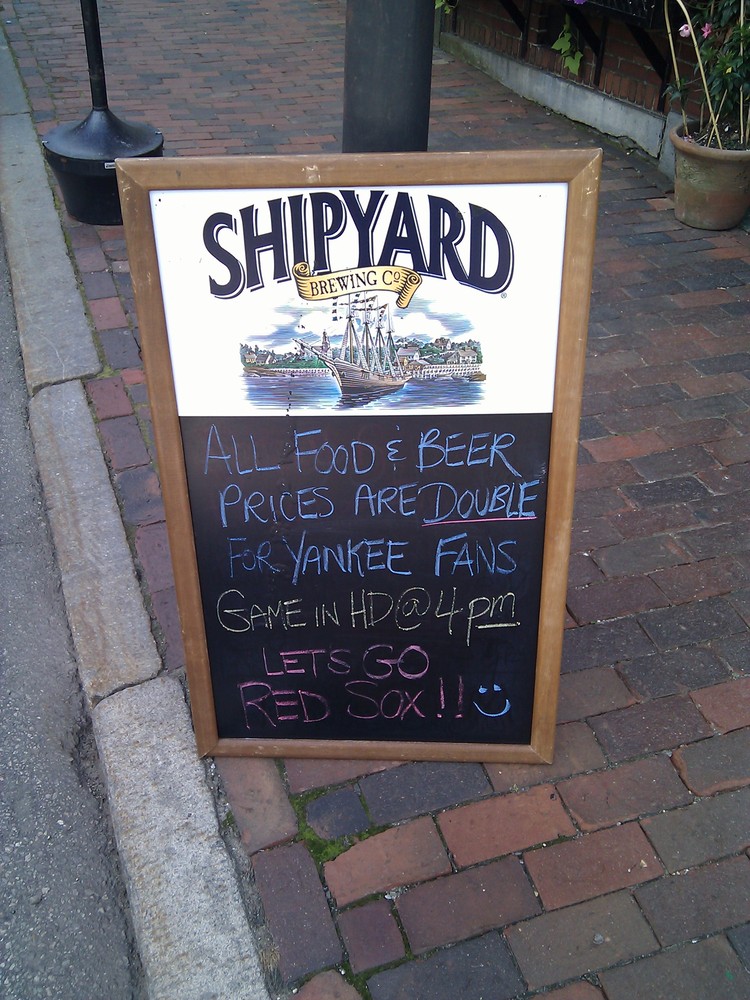 SHIPYARD
BREWING Co
®
ALL FOOD & BEER
PRICES ARE DOUBLE
FOR YANKEE FANS
GAME IN HD@4pm
LET'S GO
RED SOX!!